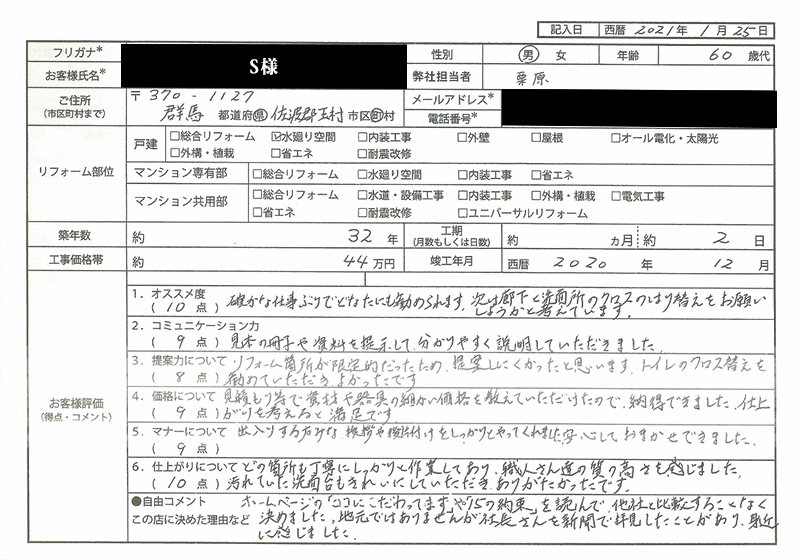 記入日 西暦 2021年 1月 25日
フリガナ*
お客様氏名*
S様
性別 男 女 年齢 60 歳代
弊社担当者 栗原
ご住所
(市区町村まで)
〒370-1127
群馬 都道府県 佐波郡玉村 市区町村
メールアドレス*
電話番号*
リフォーム部位
戸建 □総合リフォーム ☑水廻り空間 □内装工事 □外壁 □屋根 □オール電化・太陽光
□外構・植栽 □省エネ □耐震改修
マンション専有部 □総合リフォーム □水廻り空間 □内装工事 □省エネ
マンション共用部 □総合リフォーム □水道・設備工事 □内装工事 □外構・植栽 □電気工事
□省エネ □耐震改修 □ユニバーサルリフォーム
築年数 約 32 年
工期
(月数もしくは日数)
約 カ月 約 2 日
工事価格帯 約 44 万円 竣工年月 西暦 2020 年 12 月
お客様評価
(得点・コメント)
1. オススメ度 確かな仕事ぶりでどなたにも勧められます。次は廊下と洗面所のクロスのはり替えをお願い
(10点) しようかと考えています。
2. コミュニケーション力
(9点) 見本の冊子や資料を提示して、分かりやすく説明していただきました。
3. 提案力について リフォーム箇所が限定的だったため、提案しにくかったと思います。トイレのクロス替えを
(8点) 勧めていただき、よかったです
4. 価格について 見積もり等で資材や器具の細かい価格を教えていただけたので、納得できました。仕上
(9点) がりを考えると満足です
5. マナーについて 出入りする方みな、挨拶や後片付けをしっかりとやってくれました。安心しておまかせできました。
(9点)
6. 仕上がりについて どの箇所も丁寧にしっかりと作業してあり、職人さん達の質の高さを感じました。
(10点) 汚れていた洗面台もきれいにしていただき、ありがたかったです。
●自由コメント ホームページの「ココにこだわってます」や「15の約束」を読んで、他社と比較することなく
この店に決めた理由など 決めました。地元ではありませんが社長さんを新聞で拝見したことがあり、身近
に感じました。